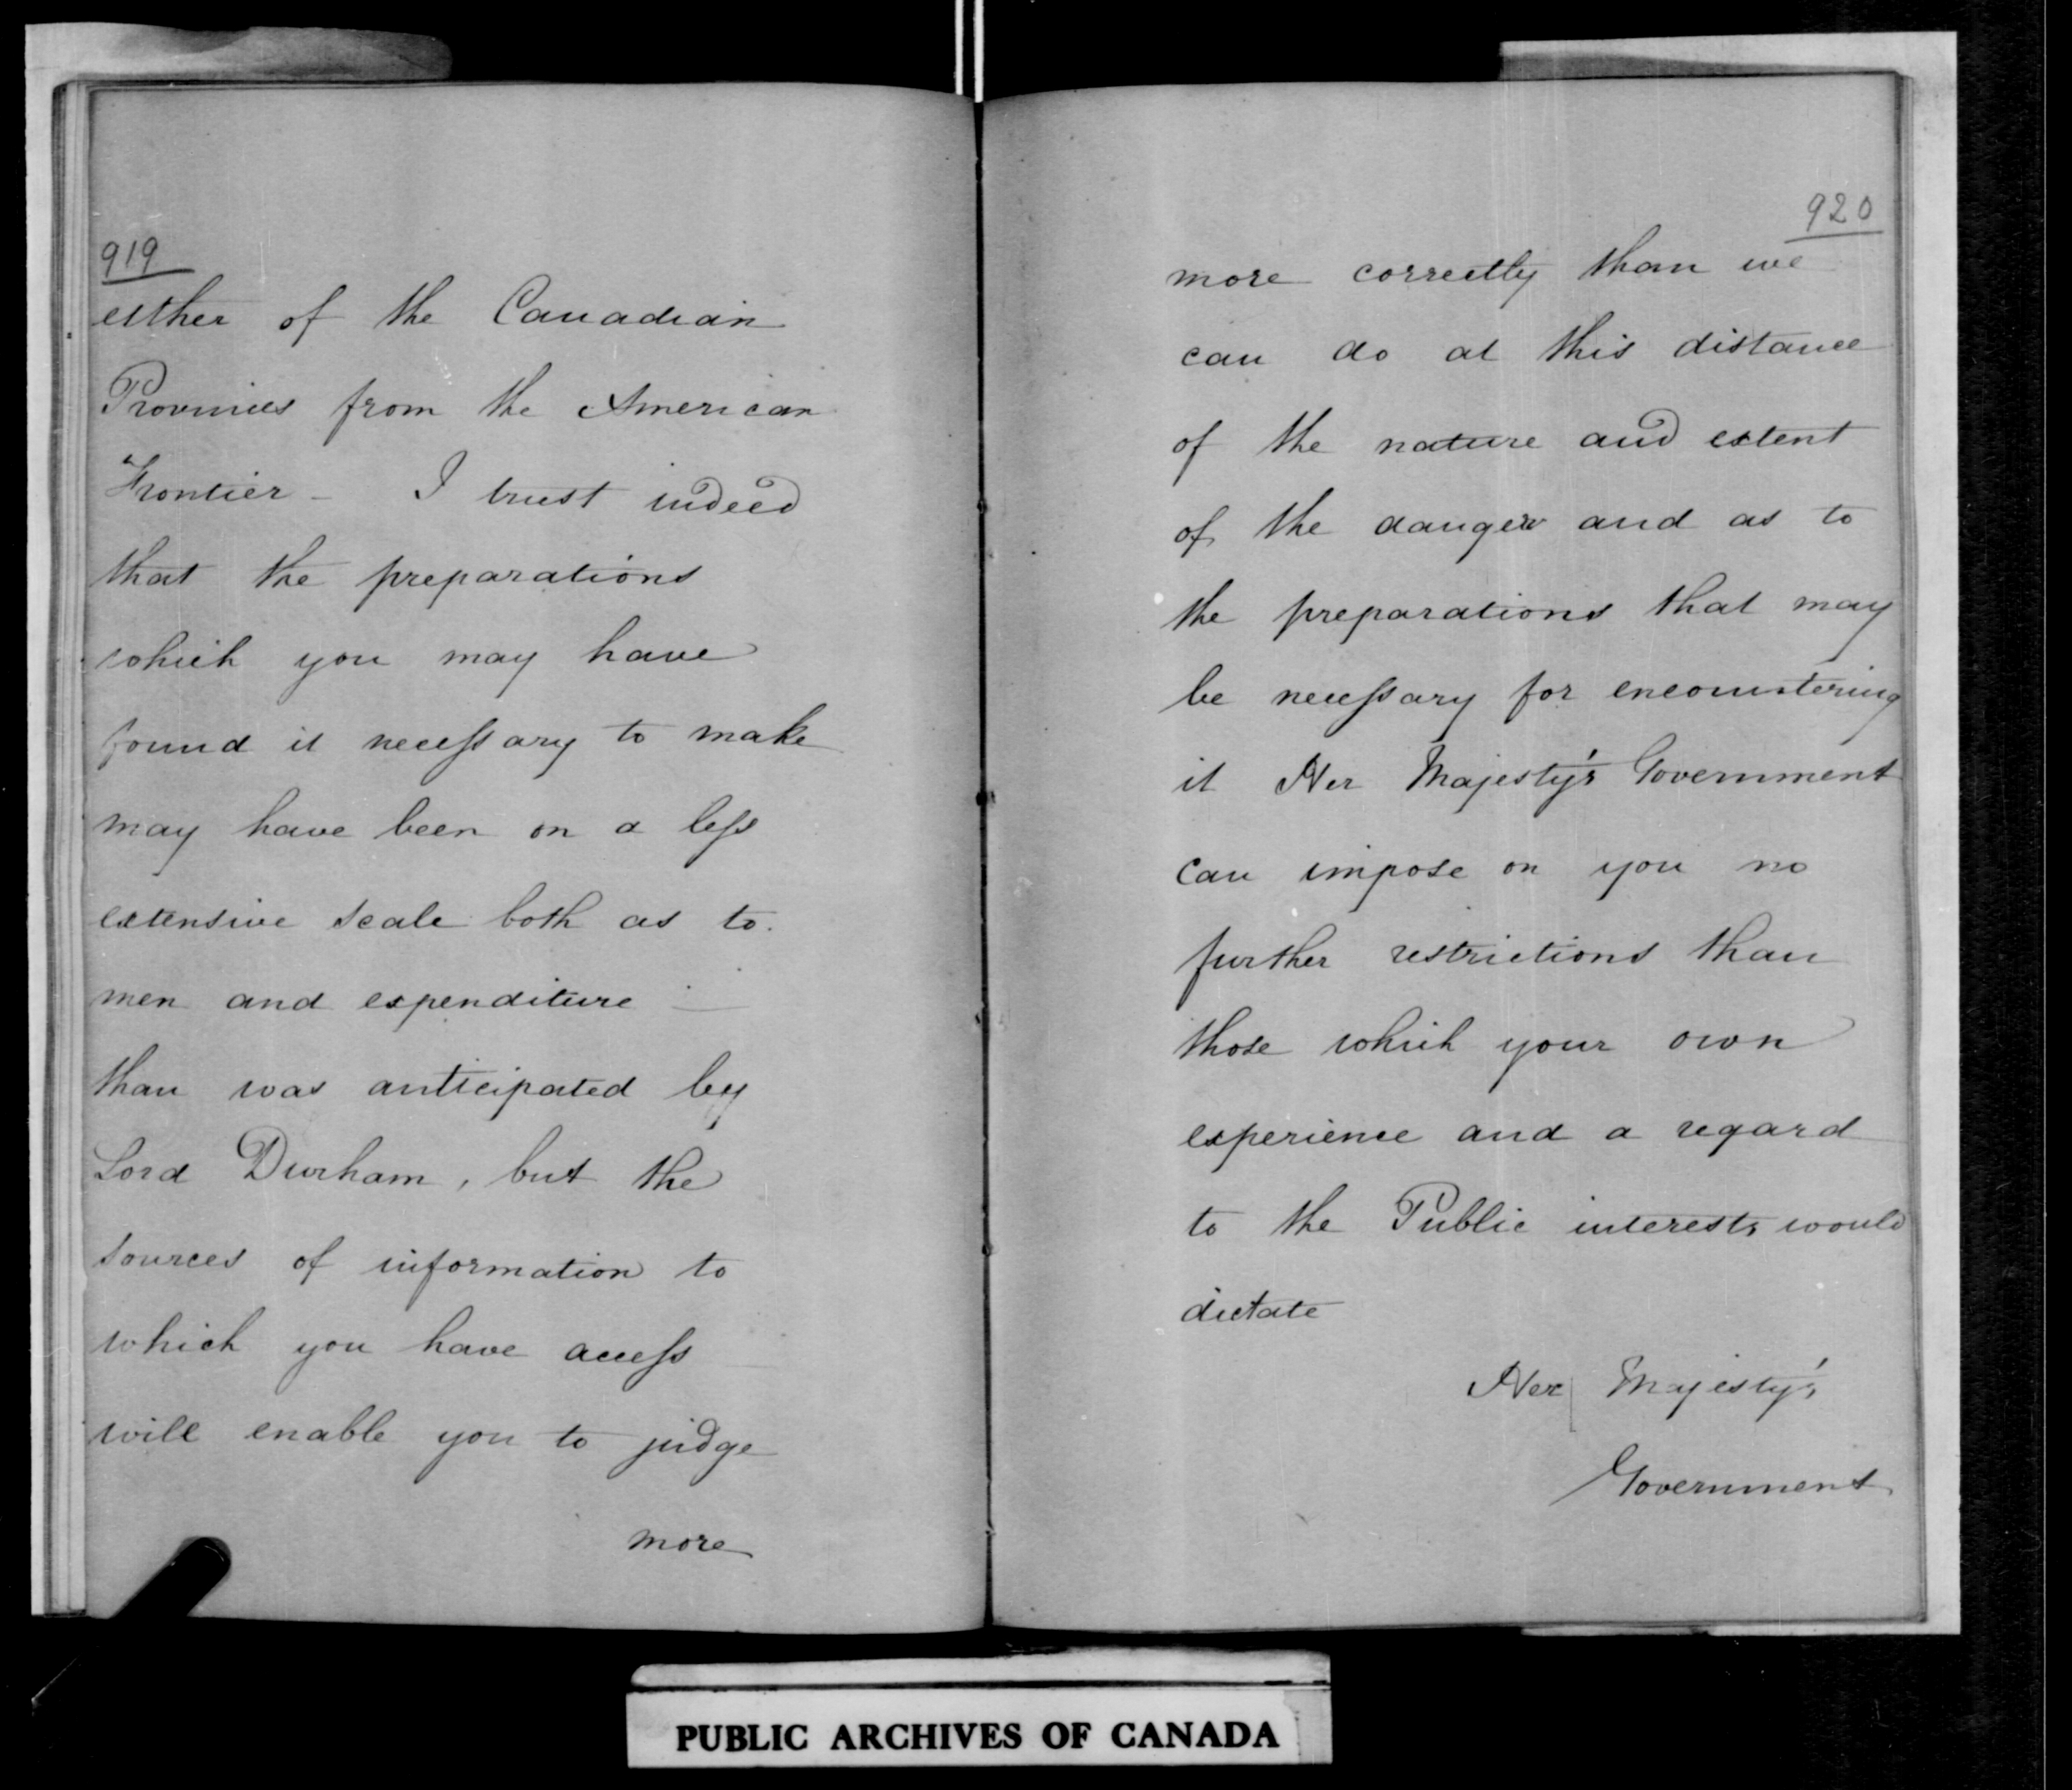 919
either of the Canadian
Provinces from the American
Frontier - I trust indeed
that the preparations
which you may have
found it necessary to make
may have been on a less
extensive scale both as to
men and expenditure -
than was anticipated by
Lord Durham, but the
sources of information to
which you have access
will enable you to judge
more
920
more correctly than we
can do at this distance
of the nature and extent
of the danger and as to
the preparations that may
be necessary for encountering
it Her Majesty's Government
can impose on you no
further restrictions than
those which your own
experience and a regard
to the Public interests would
dictate
Her Majesty's
Government
PUBLIC ARCHIVES OF CANADA